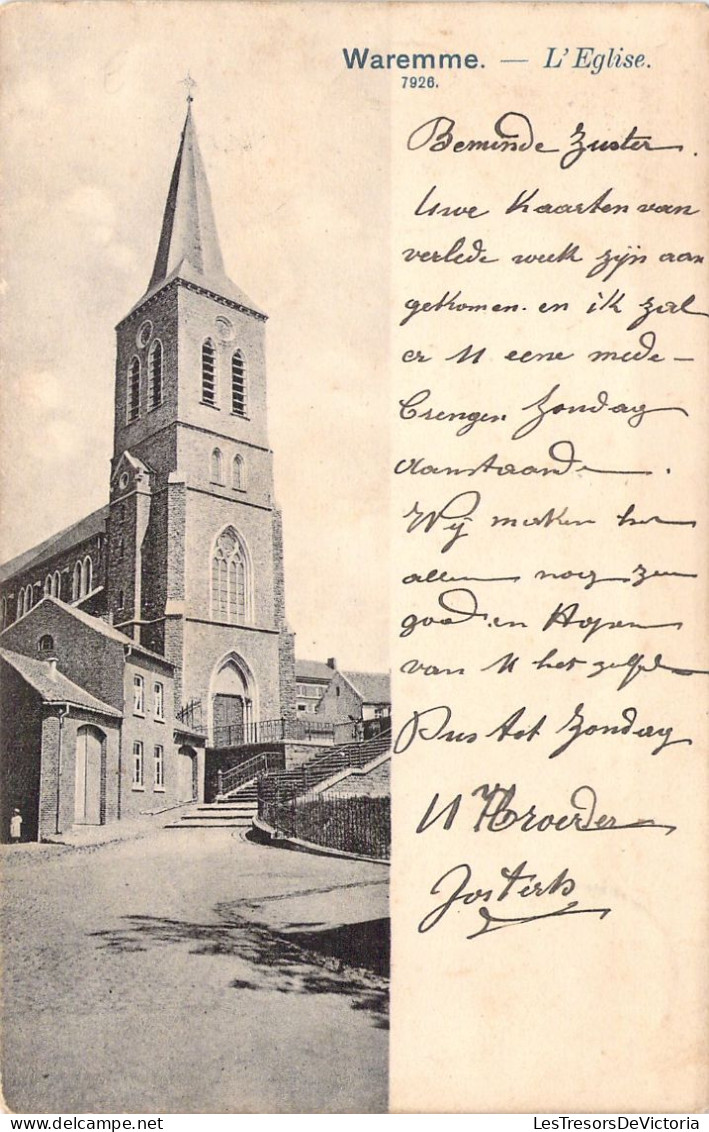 Waremme. — L'Eglise.
7926.
Beminde Zuster.
Uwe Kaarten van
verlede week zijn aan
gekomen. en ik zal
er U eene mede-
brengen Zondag
Aanstaande.
Wij maken het
allen nog zeer
goed en Hopen
van U het zelfde
Dus tot Zondag
U Broeder
LesTresorsDeVictoria